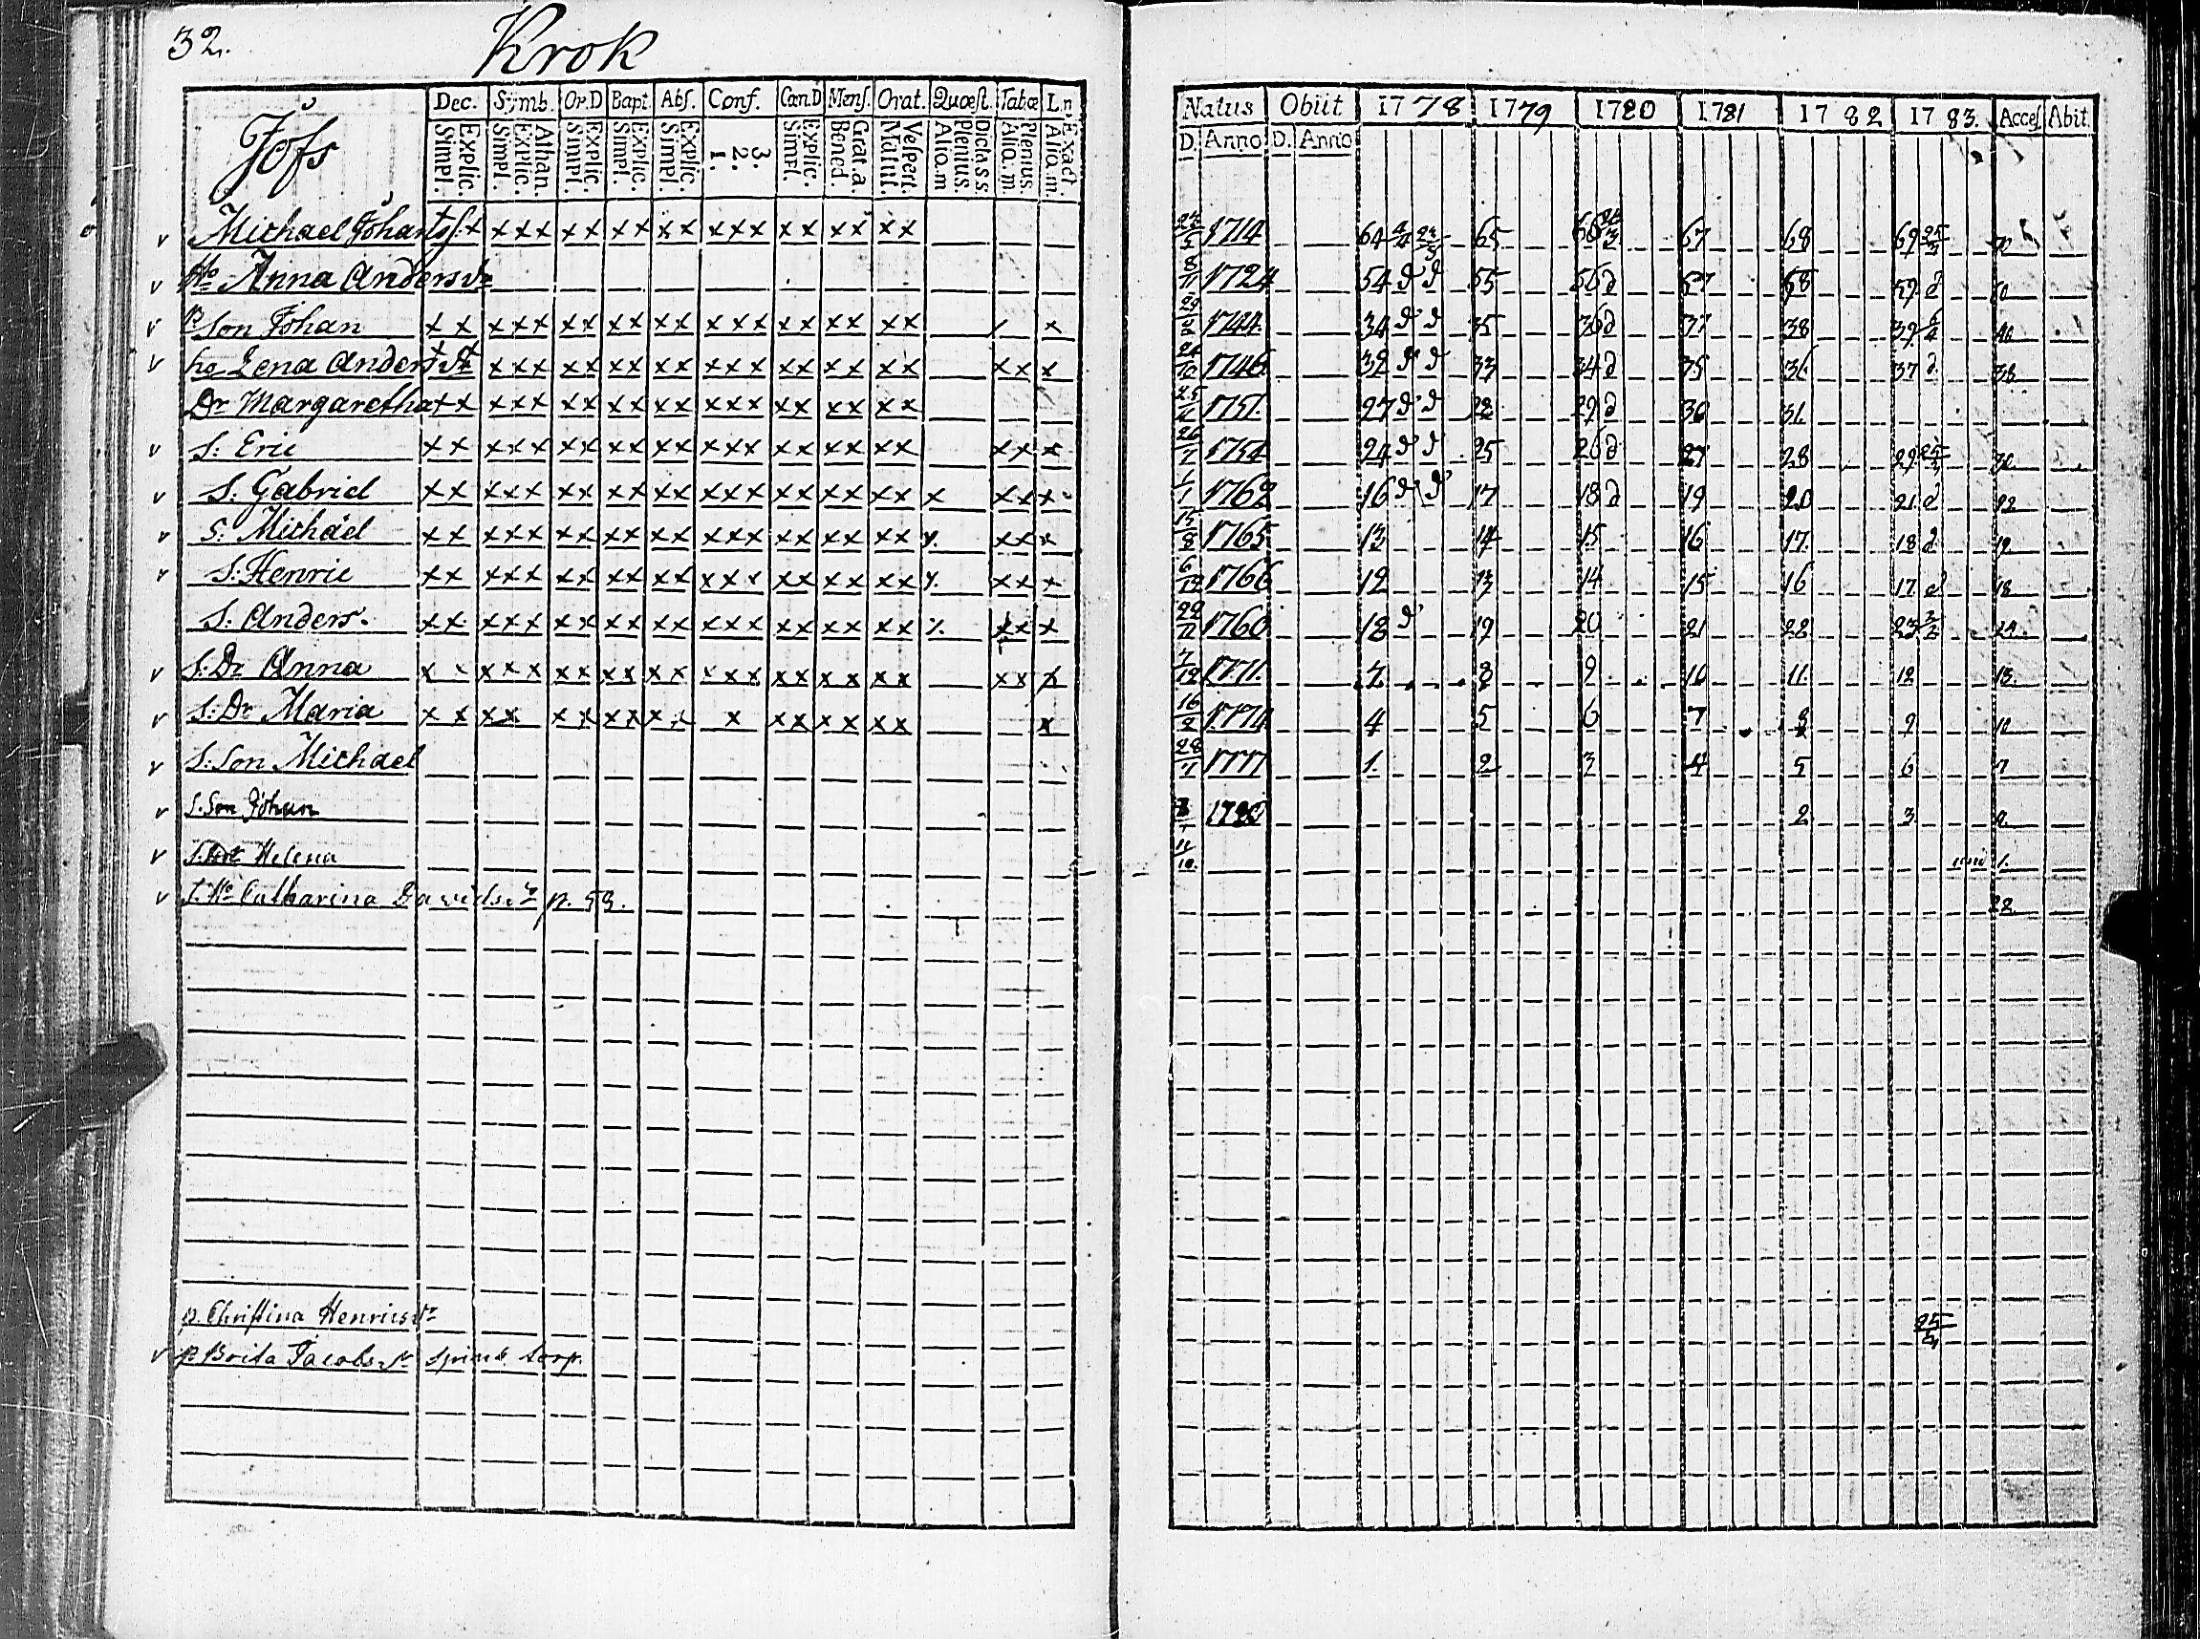 32.
Krok
Jofs
Dec. Symb. Or.D Bapt. Abs. Conf. Cœn.D Mens. Orat. Quœst. Tabœ L.n
Simpl. Explic. Simpl. Explic. Athan. Simpl. Explic. Simpl. Explic. Simpl. Explic. 1. 2. 3. Simpl. Explic. Bened. Grat.a. Matut. Vespert. Aliq.m Plenius. Dicta s s. Aliq.m. Plenius. Aliq.m. Exact.
Natus Obiit 1778 1779 1780 1781 1782 1783. Acces. Abit.
D. Anno D. Anno
Michael Johans S. x xxx xx xx xx xxx xx xx xx 1714 64 65 66 67 68 69
Ho Anna Andersdr 8/11 1724 54 d d 55 56 d 57 58 59 d
Son Johan xx xxx xx xx xx xxx xx xx xx x 1744 34 d d 35 36 d 37 38 39 40
ho Lena Andersdr xxx xx xx xx xxx xx xx xx xx x 1746 32 d d 33 34 d 35 36 37 d 38
Dr Margaretha xx xxx xx xx xx xxx xx xx xx 1751. 27 d d 28 29 d 30 31
S. Eric xx xxx xx xx xx xxx xx xx xx xx x 1754 24 d d 25 26 d 27 28 29 30
S. Gabriel xx xxx xx xx xx xxx xx xx xx x xx x 1/1 1762 16 d d 17 18 d 19 20 21 d 22
S. Michäel xx xxx xx xx xx xxx xx xx xx xx x 15/8 1765 13 14 15 16 17 18 d 19
S. Henric xx xxx xx xx xx xxx xx xx xx xx x 6/12 1766 12 13 14 15 16 17 d 18
S. Anders. xx xxx xx xx xx xxx xx xx xx xx x 22/11 1760 18 d 19 20 21 22 23 24
S. Dr Anna xx xxx xx xx xx xxx xx xx xx xx x 7/12 1771. 7 8 9 10 11. 12 13.
S. Dr Maria xx xx xx xx xx x xx xx xx x 16/2 1774 4 5 6 7 8 9 10
S. Son Michael 28/7 1777 1. 2 3 4 5 6 7
S. Son Johan 1780 2 3
S. Helena 11/10. 1.
Catharina Davidsdr p. 53. 22
p. Christina Henricsdr 25/4
p Brita Jacobsdr torp.